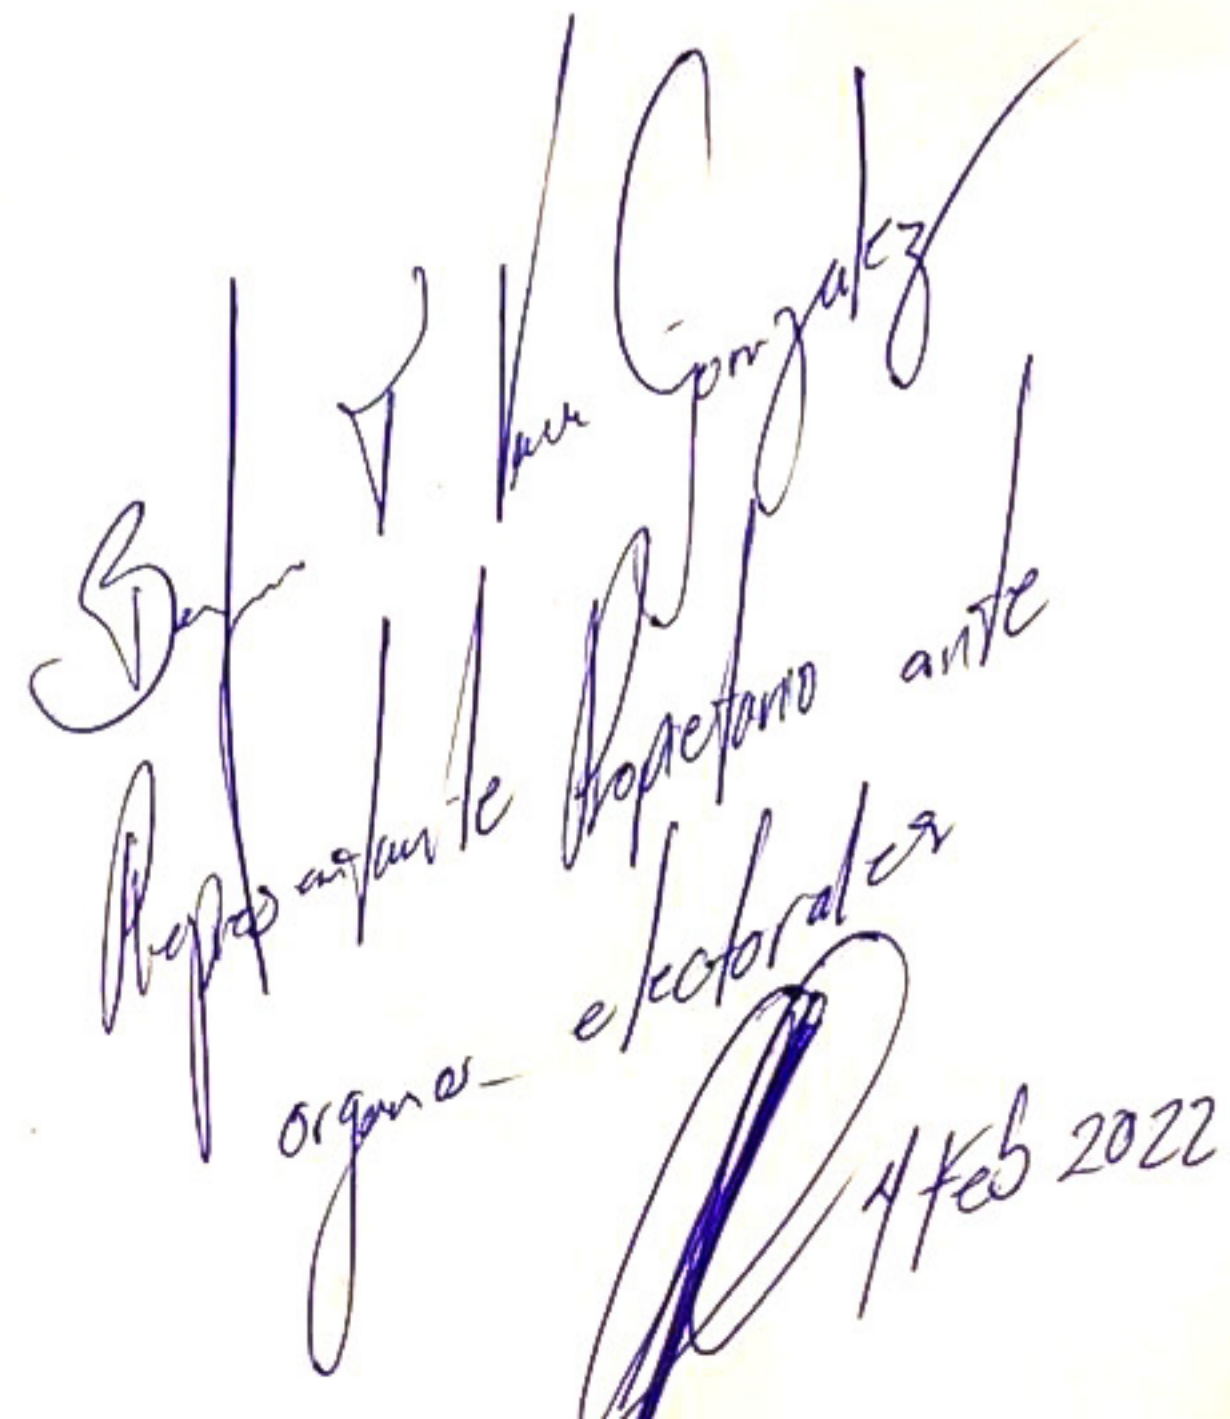 González
Representante Propietario ante
organos electorales
4 Feb 2022